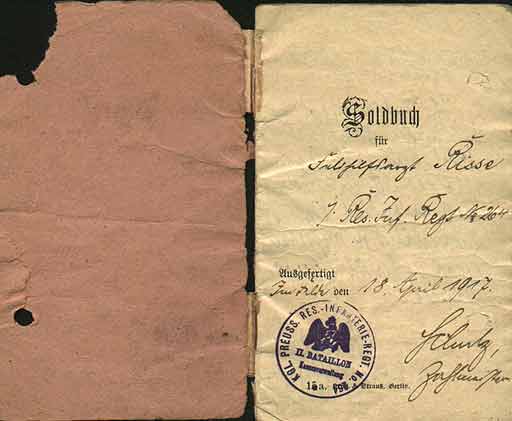 Soldbuch
für
Feldhilfsarzt Risse
Res. Inf. Regt. No 264
Ausgefertigt
Im Felde den 18. April 1917.
KGL. PREUSS. RES.-INFANTERIE-REGT. No. 264
II. BATAILLON
Kassenverwaltung
Schultz,
Zahlmeister
Strauss, Berlin.